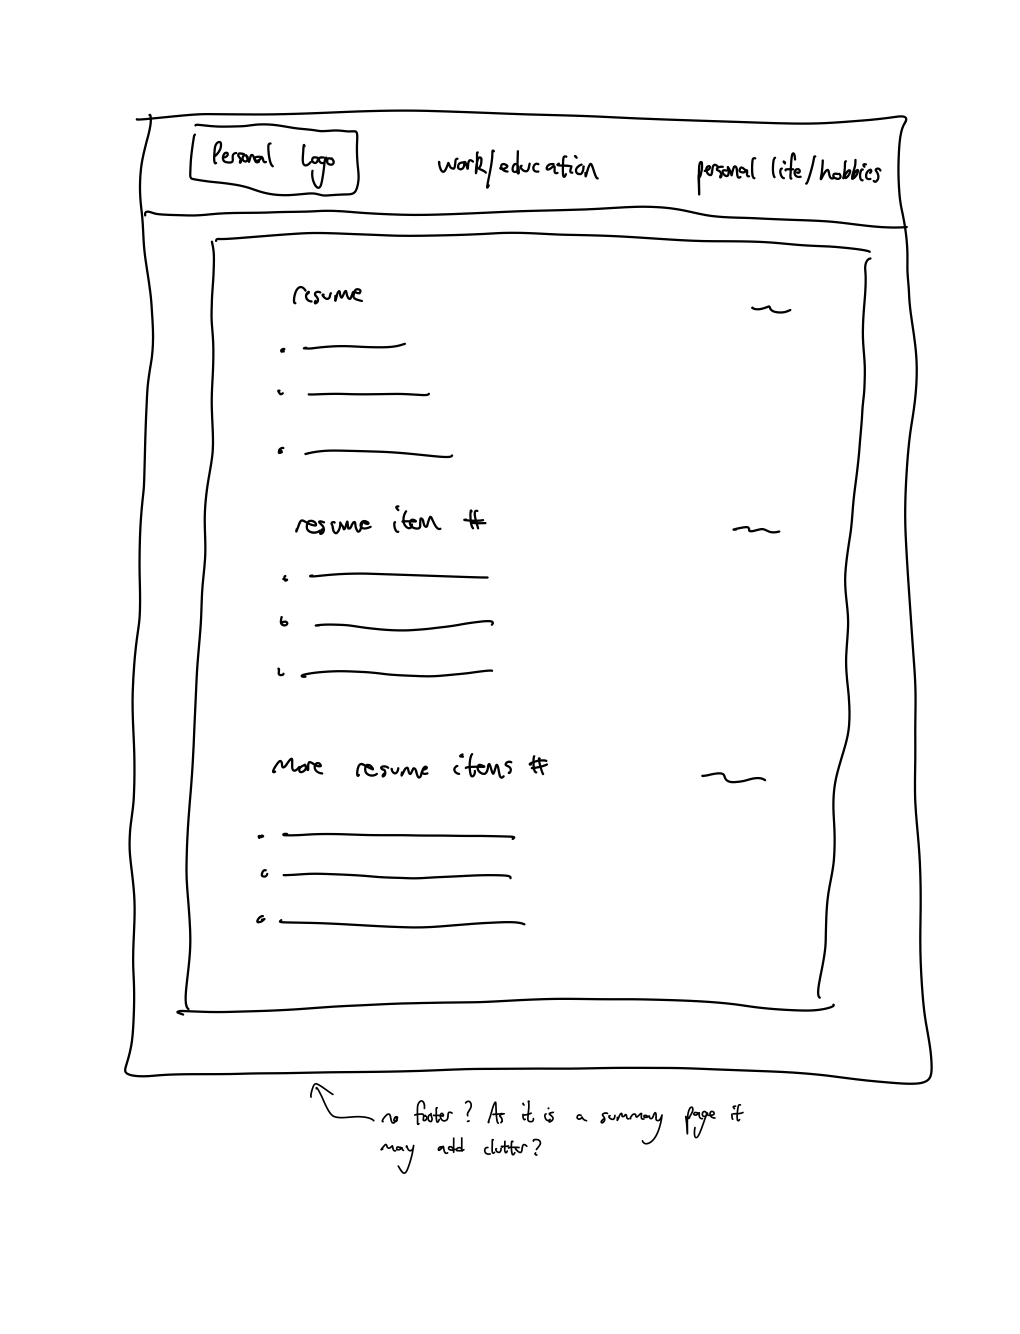 Personal Logo
work/education
personal life/hobbies
resume
resume item #
More resume items #
no footer? As it is a summary page it
may add clutter?